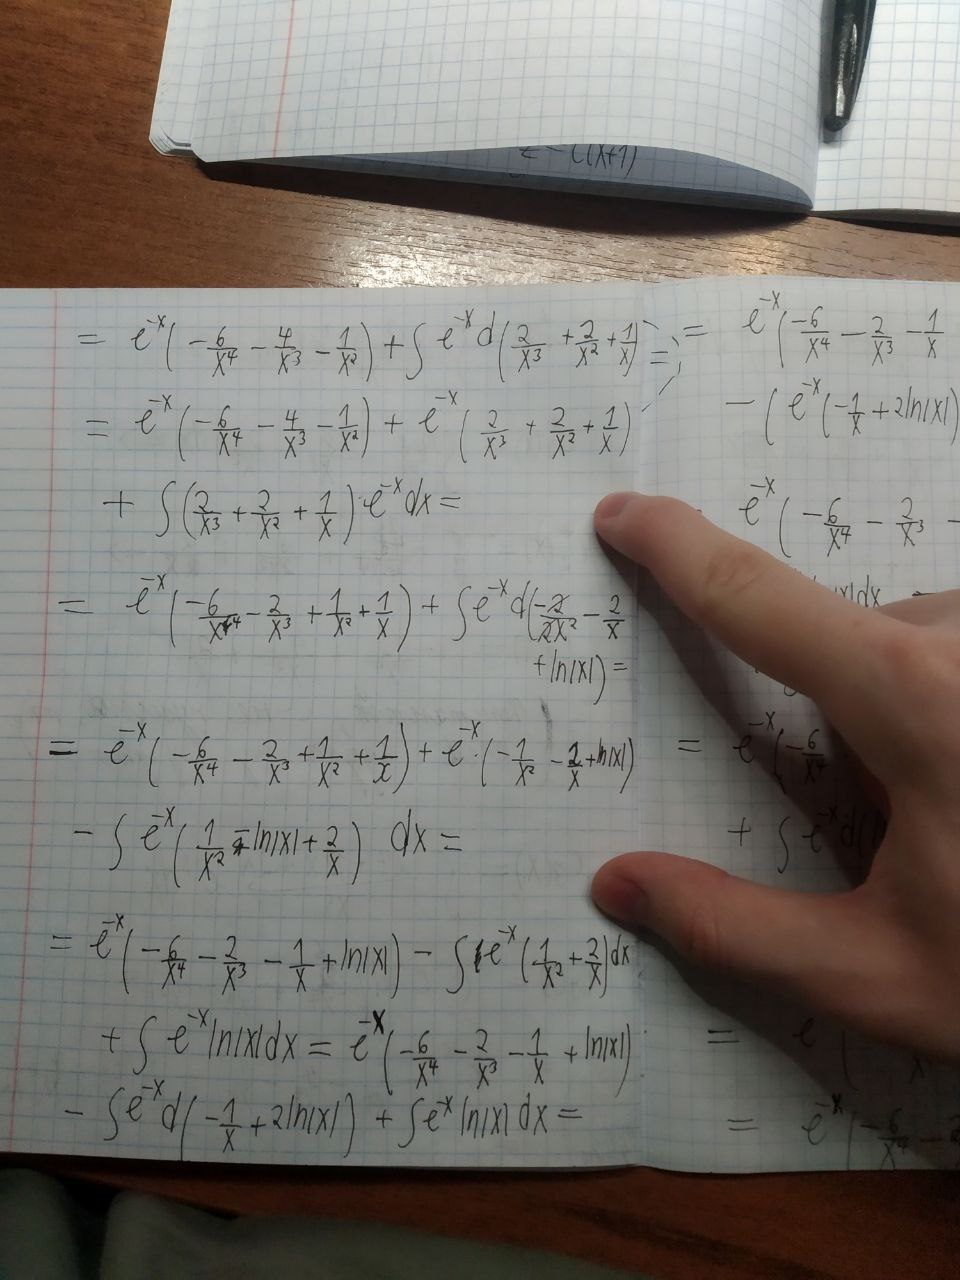 = e^{-x}(-6/x^4 - 4/x^3 - 1/x^2) + ∫ e^{-x} d(2/x^3 + 2/x^2 + 1/x) =
= e^{-x}(-6/x^4 - 4/x^3 - 1/x^2) + e^{-x}(2/x^3 + 2/x^2 + 1/x)
+ ∫(2/x^3 + 2/x^2 + 1/x)·e^{-x}dx =
= e^{-x}(-6/x^4 - 2/x^3 + 1/x^2 + 1/x) + ∫e^{-x}d(-2/2x^2 - 2/x
+ ln|x|) =
= e^{-x}(-6/x^4 - 2/x^3 + 1/x^2 + 1/x) + e^{-x}·(-1/x^2 - 2/x + ln|x|)
- ∫ e^{-x}(1/x^2 - ln|x| + 2/x) dx =
= e^{-x}(-6/x^4 - 2/x^3 - 1/x + ln|x|) - ∫ e^{-x}(1/x^2 + 2/x)dx
+ ∫ e^{-x}ln|x|dx = e^{-x}(-6/x^4 - 2/x^3 - 1/x + ln|x|)
- ∫e^{-x}d(-1/x + 2ln|x|) + ∫e^{-x}ln|x|dx =
= e^{-x}(-6/x^4 - 2/x^3 - 1/x
- (e^{-x}(-1/x + 2ln|x|)
e^{-x}(-6/x^4 - 2/x^3 -
= e^{-x}(-6/x^4
+ ∫e^{-x}d(
= e
= e^{-x}(-6/x^4 -